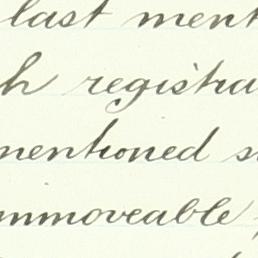 last ment
h registra
mentioned s
mmoveable